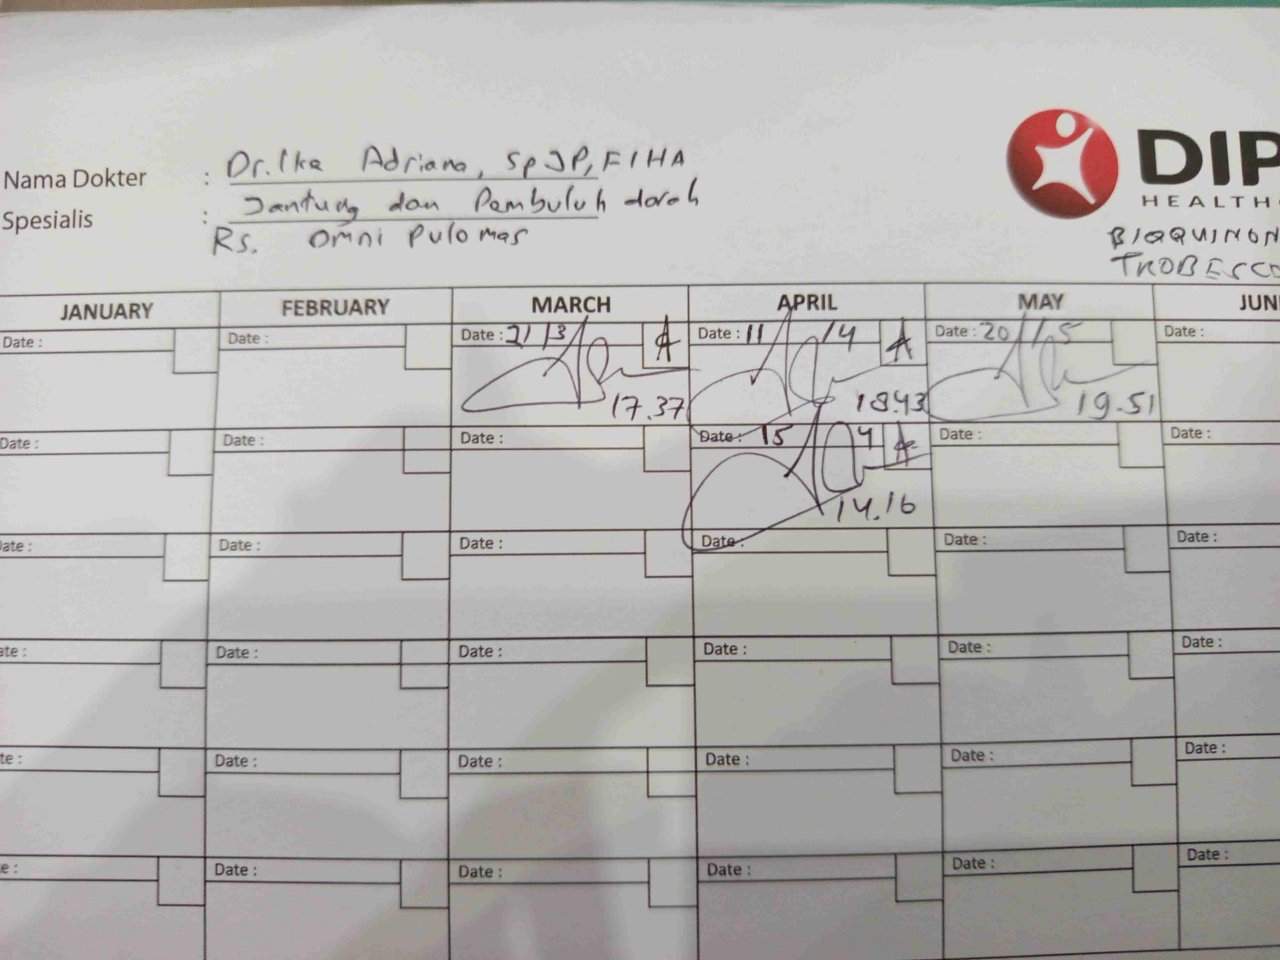 Nama Dokter : Dr. Ika Adriana, SpJP, FIHA
Spesialis : Jantung dan Pembuluh darah
Rs. Omni Pulomas
DIP
HEALTHC
BIOQUINON
TROBESCO
JANUARY FEBRUARY MARCH APRIL MAY JUN
Date : Date : Date : 21/3 A Date : 11 /4 A Date : 20/5 Date :
17.37 18.43 19.51
Date : Date : Date : Date : 15 4 A Date : Date :
14.16
ate : Date : Date : Date : Date : Date :
te : Date : Date : Date : Date : Date :
te : Date : Date : Date : Date : Date :
e : Date : Date : Date : Date : Date :